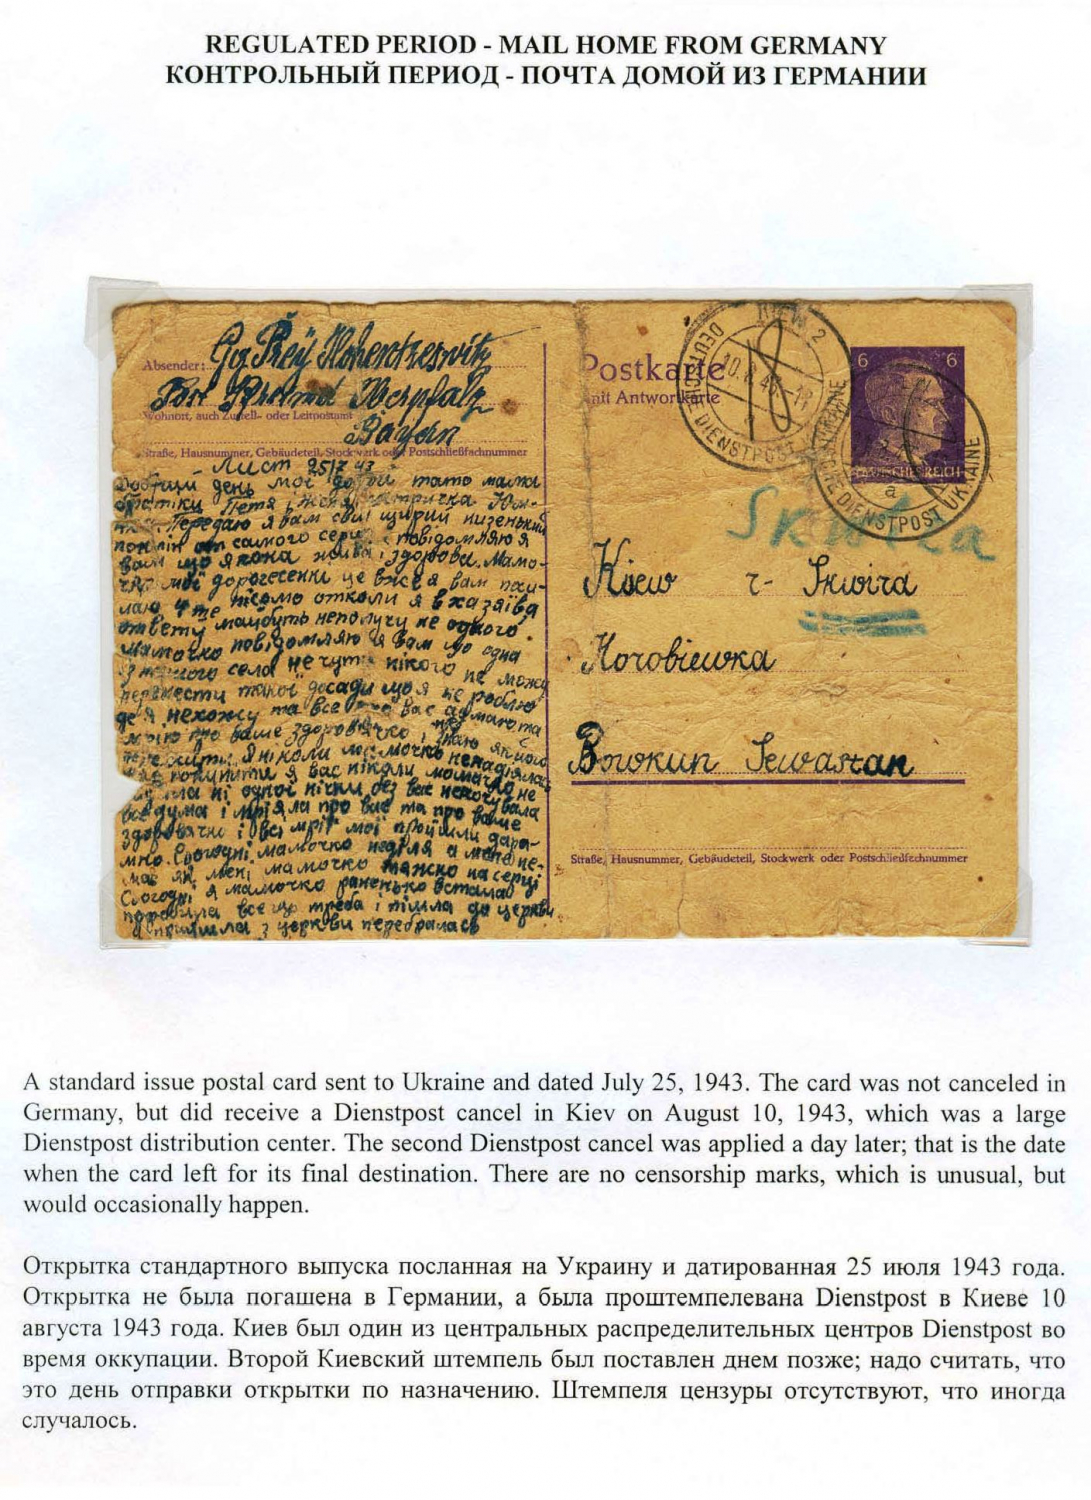 REGULATED PERIOD - MAIL HOME FROM GERMANY
КОНТРОЛЬНЫЙ ПЕРИОД - ПОЧТА ДОМОЙ ИЗ ГЕРМАНИИ
Absender:
Wohnort, auch Zustell- oder Leitpostamt
Bayern
Straße, Hausnummer, Gebäudeteil, Stockwerk oder Postschließfachnummer
Лист 25/7 43
день мої дорогі тато мама
Петя і Женя
Передаю я вам свій щирий низенький
поклін от самого серця повідомляю я
вам що я жива і здорова. Мамо-
мої дорогесенькі це вже я вам поси-
лаю 4 те письмо отколи я в хазяїва
ответу мабуть неполучу не одного
мамочко повідомляю я вам що одна
з нашого села не чути нікого не можу
перенести такої досади що я не роблю
де я нехожу та все про вас думаю та
про ваше здоровячко і
я ніколи мамочко ненадіялась
покинути я вас ніколи мамочко
ні одної нічки без вас неночувала
все дума і мріяла про вас та про ваше
здоровячко і всі мрії мої пройшли даре-
мно. Сьогодні мамочко неділя а мене не-
має як мені мамочко тяжко на серці
Сьогодні я мамочко раненько встала
поробила все що треба і пішла до церкви
прийшла з церкви перебралась
Postkarte
mit Antwortkarte
KIEW 2
DEUTSCHE DIENSTPOST
10.8.43.-18
6 6
DEUTSCHES REICH
DEUTSCHE DIENSTPOST UKRAINE
a
Skwira
Kiew r- Skwira
Horobiewka
Bowkun Sewastian
Straße, Hausnummer, Gebäudeteil, Stockwerk oder Postschließfachnummer
A standard issue postal card sent to Ukraine and dated July 25, 1943. The card was not canceled in
Germany, but did receive a Dienstpost cancel in Kiev on August 10, 1943, which was a large
Dienstpost distribution center. The second Dienstpost cancel was applied a day later; that is the date
when the card left for its final destination. There are no censorship marks, which is unusual, but
would occasionally happen.
Открытка стандартного выпуска посланная на Украину и датированная 25 июля 1943 года.
Открытка не была погашена в Германии, а была проштемпелевана Dienstpost в Киеве 10
августа 1943 года. Киев был один из центральных распределительных центров Dienstpost во
время оккупации. Второй Киевский штемпель был поставлен днем позже; надо считать, что
это день отправки открытки по назначению. Штемпеля цензуры отсутствуют, что иногда
случалось.